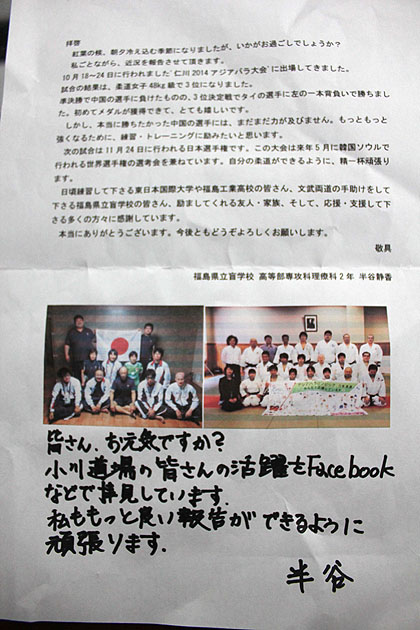 拝啓
紅葉の候、朝夕冷え込む季節になりましたが、いかがお過ごしでしょうか?
私ごとながら、近況を報告させて頂きます。
10月18～24日に行われました"仁川2014アジアパラ大会"に出場してきました。
試合の結果は、柔道女子48kg級で3位になりました。
準決勝で中国の選手に負けたものの、3位決定戦でタイの選手に左の一本背負いで勝ちました。初めてメダルが獲得できて、とても嬉しいです。
しかし、本当に勝ちたかった中国の選手には、まだまだ力が及びません。もっともっと
強くなるために、練習・トレーニングに励みたいと思います。
次の試合は11月24日に行われる日本選手権です。この大会は来年5月に韓国ソウルで
行われる世界選手権の選考会を兼ねています。自分の柔道ができるように、精一杯頑張り
ます。
日頃練習して下さる東日本国際大学や福島工業高校の皆さん、文武両道の手助けをして
下さる福島県立盲学校の皆さん、励ましてくれる友人・家族、そして、応援・支援して下
さる多くの方々に感謝しています。
本当にありがとうございます。今後ともどうぞよろしくお願いします。
敬具
福島県立盲学校 高等部専攻科理療科2年 半谷静香
皆さん、お元気ですか?
小川道場の皆さんの活躍をFacebook
などで拝見しています.
私ももっと良い報告ができるように
頑張ります.
半谷